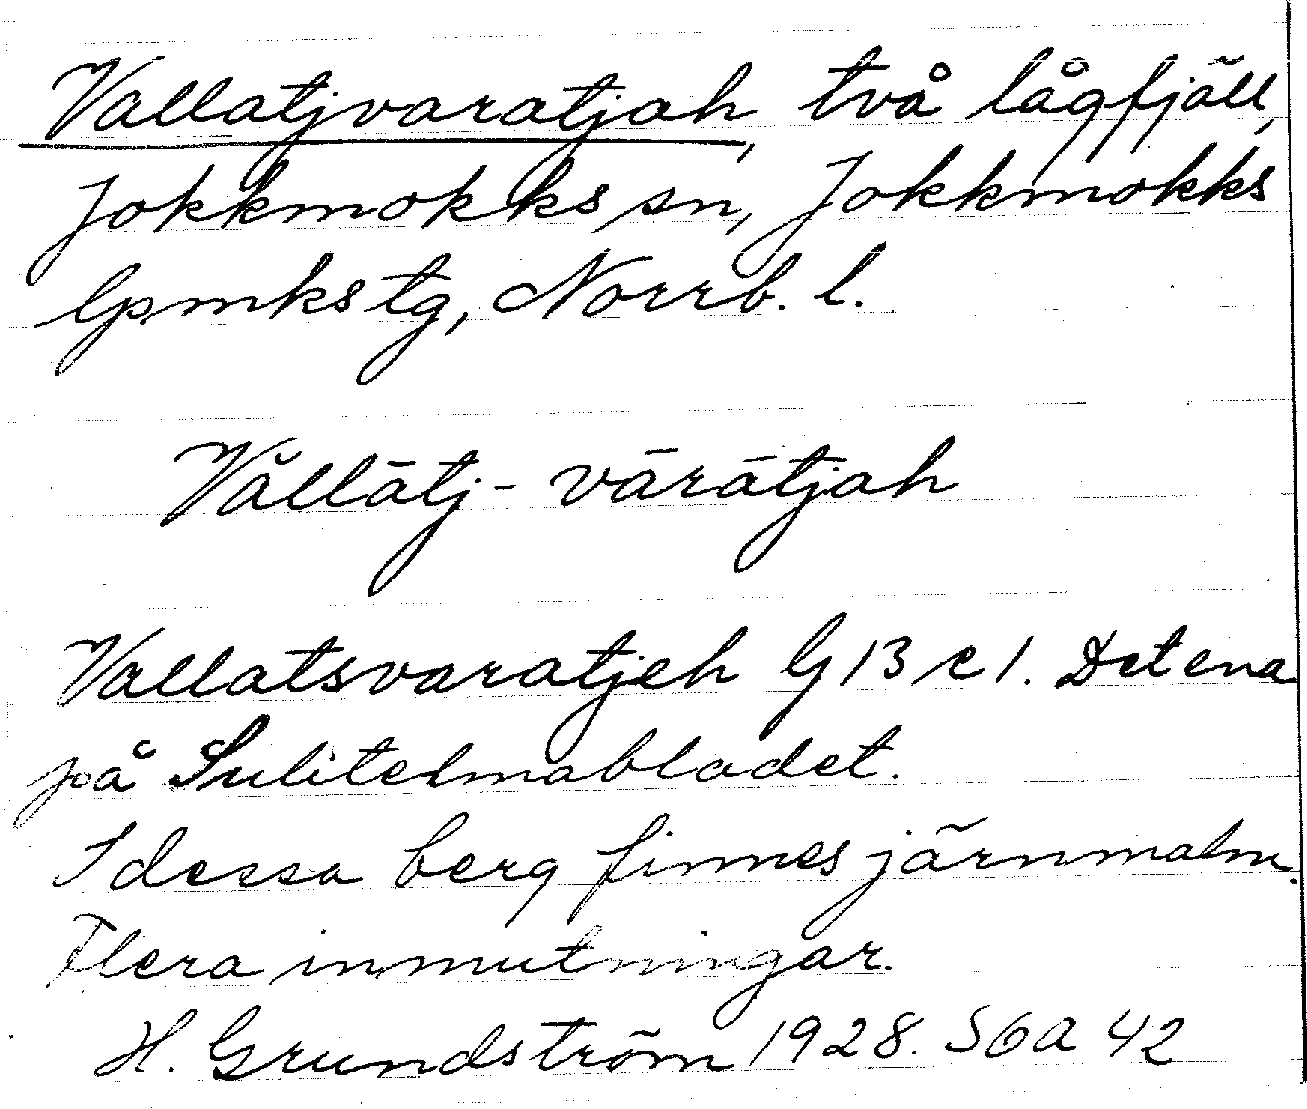 Vallatjvaratjah, två lågfjäll,
Jokkmokks sn, Jokkmokks
lpmkstg, Norrb. l.
Vållātj- vārātjah
Vallatsvaratjeh G 13 c 1. Det ena
på Sulitelmabladet.
I dessa berg finnes järnmalm.
Flera inmutningar.
H. Grundström 1928. S6a 42